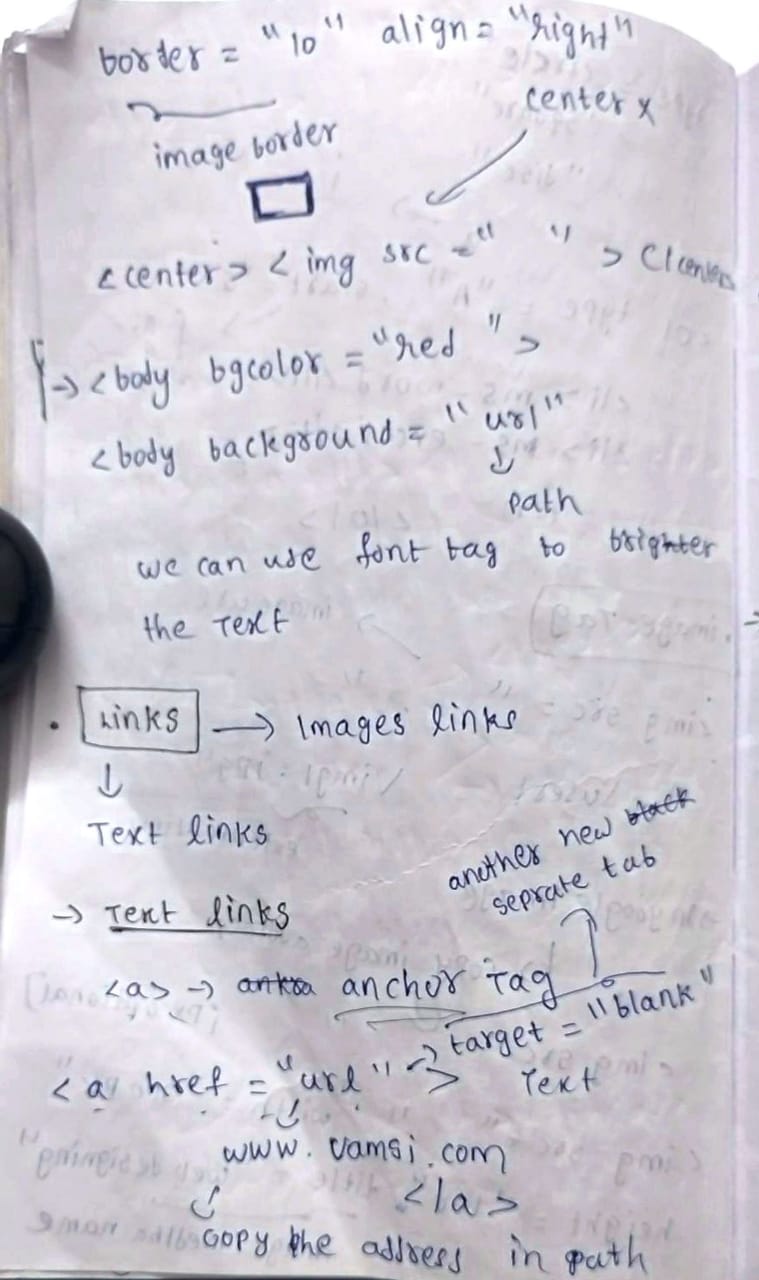 border = "10" align = "right"
center x
image border
<center> < img src = " " > </center>
→ <body bgcolor = "red ">
<body background = "url"
path
we can use font tag to brighter
the Text
. Links → Images links
Text links
another new black
seprate tab
→ Text links
<a> → anchor Tag
→ target = "blank"
< a href = "url" > Text
www.vamsi.com
</a>
copy the address in path